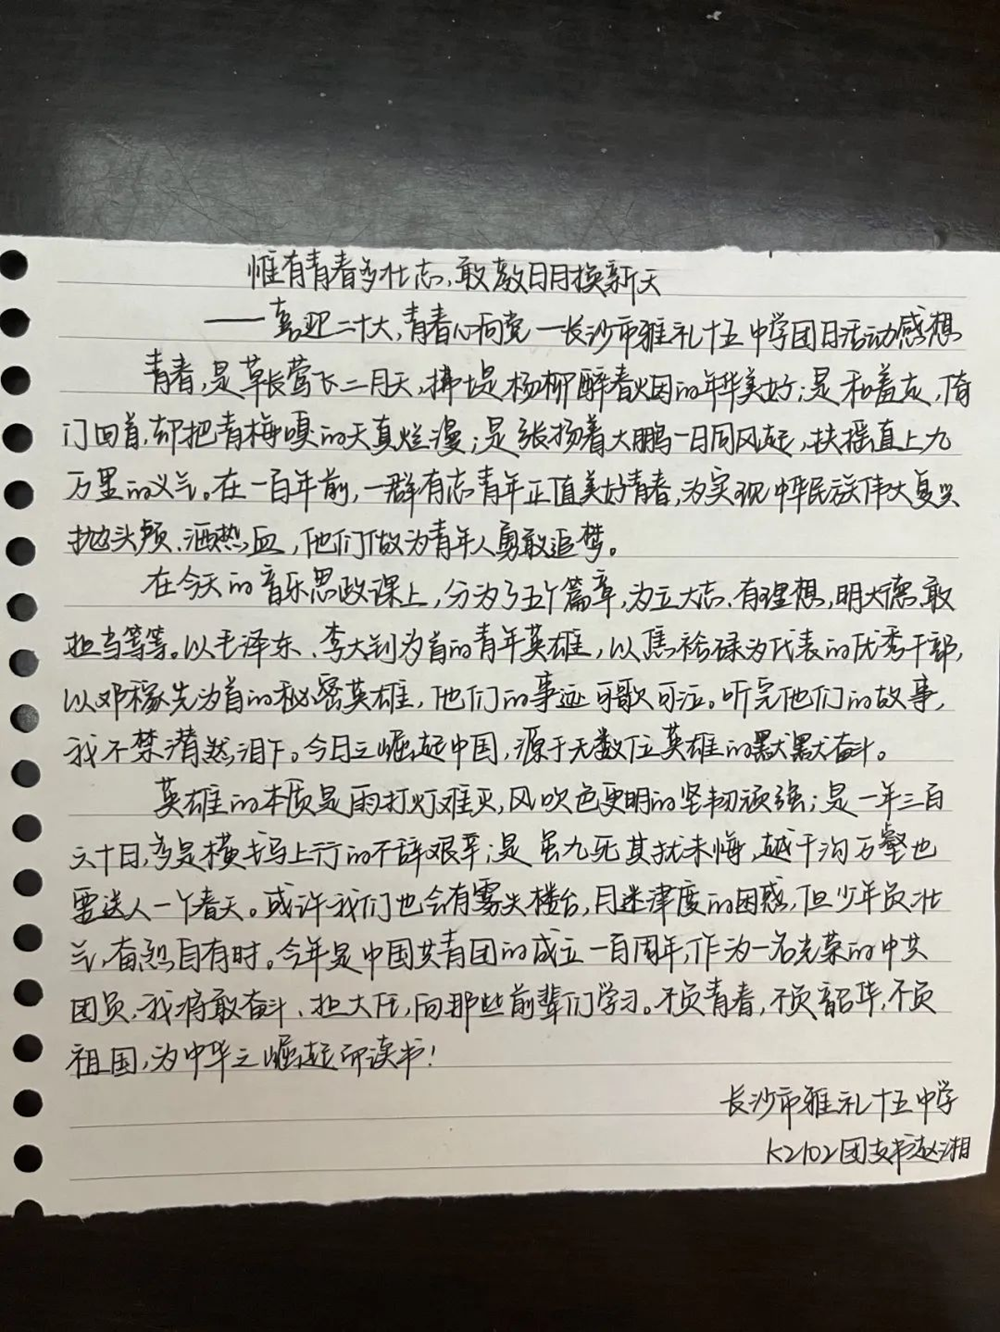 惟有青春多壮志,敢教日月换新天
——喜迎二十大,青春心向党—长沙市雅礼十五中学团日活动感想
青春,是草长莺飞二月天,拂堤杨柳醉春烟的年华美好;是和羞走,倚
门回首,却把青梅嗅的天真烂漫;是张扬着大鹏一日同风起,扶摇直上九
万里的义气。在一百年前,一群有志青年正值美好青春,为实现中华民族伟大复兴
抛头颅、洒热血,他们做为青年人勇敢追梦。
在今天的音乐思政课上,分为了五个篇章,为立大志、有理想,明大德,敢
担当等等。以毛泽东、李大钊为首的青年英雄,以焦裕禄为代表的优秀干部,
以邓稼先为首的秘密英雄,他们的事迹可歌可泣。听完他们的故事,
我不禁潸然泪下。今日之崛起中国,源于无数位英雄的默默奋斗。
英雄的本质是雨打灯难灭,风吹色更明的坚韧顽强;是一年三百
六十日,多是横戈马上行的不辞艰辛;是虽九死其犹未悔,越千沟万壑也
要送人一个春天。或许我们也会有雾失楼台,月迷津度的困惑,但少年负壮
气,奋烈自有时。今年是中国共青团的成立一百周年,作为一名光荣的中共
团员,我将敢奋斗、担大任,向那些前辈们学习。不负青春,不负韶华,不负
祖国,为中华之崛起而读书!
长沙市雅礼十五中学
K2102团支书赵湘